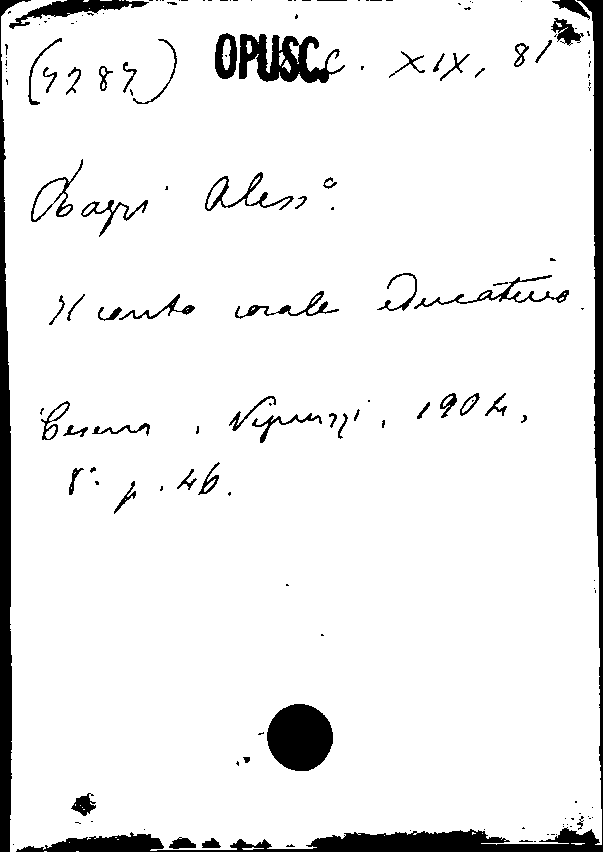 (7287) OPUSC. C. XIX, 81
Bagni Aless°.
Il canto corale educativo.
Cesena, Vignuzzi, 1904,
8° p. 46.